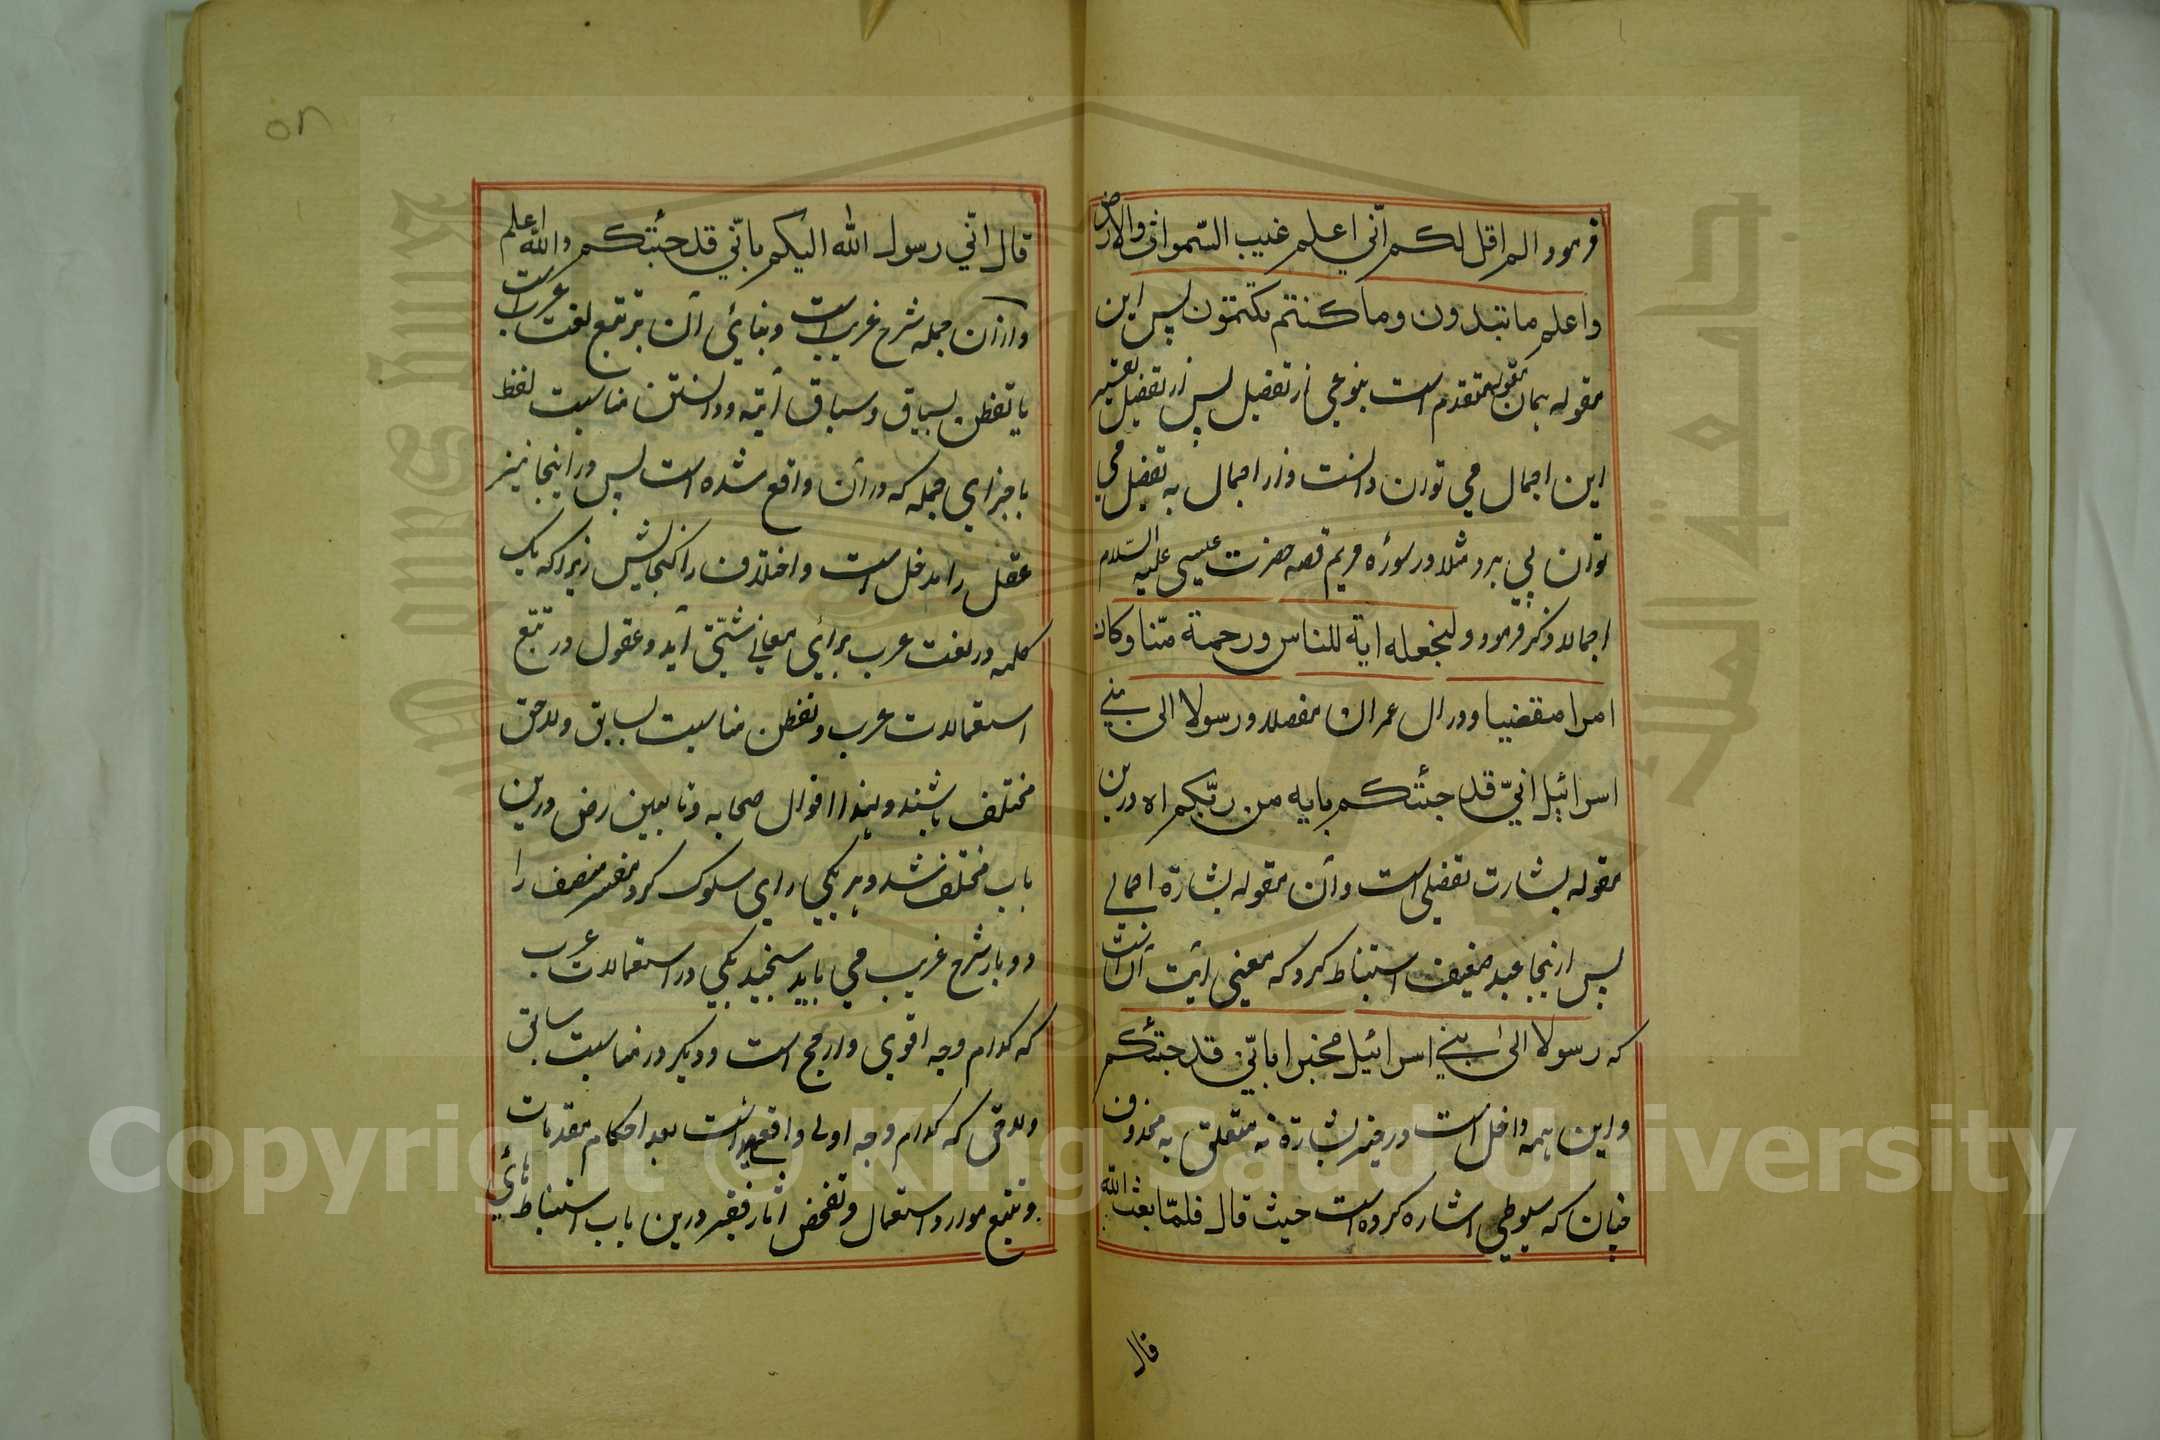 فرمود الم اقل لكم انّي اعلم غيب السّموات والارض
واعلم ما تبدون وما كنتم تكتمون پس این
مقوله بمان مقوله متقدم است بنوعی از تفصیل پس از تفصیل تفسیر
این اجمال می توان دانست و از اجمال به تفصیل می
توان پی برد مثلا در سورۀ مریم قصه حضرت عیسی علیه السّلام
اجمالا ذکر فرمود ولنجعله اية للناس ورحمة منّا وكان
امرا مقضيا ودر ال عمران مفصلا ورسولا الى بني
اسرائيل انّي قد جئتكم باية من ربّكم اه درین
مقوله بشارت تفصیلی است وآن مقوله بشارة اجمالی
پس ازینجا عبد ضعیف استنباط کرد که معنی آیت آن است
که رسولا الى بني اسرائيل مخبرا بانّي قد جئتكم
و این همه داخل است در حیز بشارة نه متعلق به محذوف
چنان که سیوطی اشاره کرده است حيث قال فلمّا بعثه الله
قال
۵۸
قال انّي رسول الله اليكم بانّي قد جئتكم والله اعلم
و از آن جمله شرح غریب است و بنای آن بر تتبع لغت عرب است
یا تفطن بسیاق و سباق آیه و دانستن مناسبت لفظ
باجزای جمله که در آن واقع شده است پس در اینجا نیز
عقل را مدخل است و اختلاف را گنجایش زیرا که یک
کلمه در لغت عرب برای معانی شتّی آید و عقول در تتبّع
استعمالات عرب و تفطن مناسبت سابق و لاحق
مختلف باشند و لهذا اقوال صحابه و تابعین رض درین
باب مختلف شد و هر یکی رای سلوک کرد مفسر منصف را
دو بار شرح غریب می باید سنجید یکی در استعمالات عرب
که کدام وجه اقوی و ارجح است و دیگر در مناسبت سابق
و لاحق که کدام وجه اولی و اقعد است بعد احکام مقدمات
و تتبع موارد استعمال و تفحص آثار فقیر درین باب استنباط هائی
Copyright © King Saud University